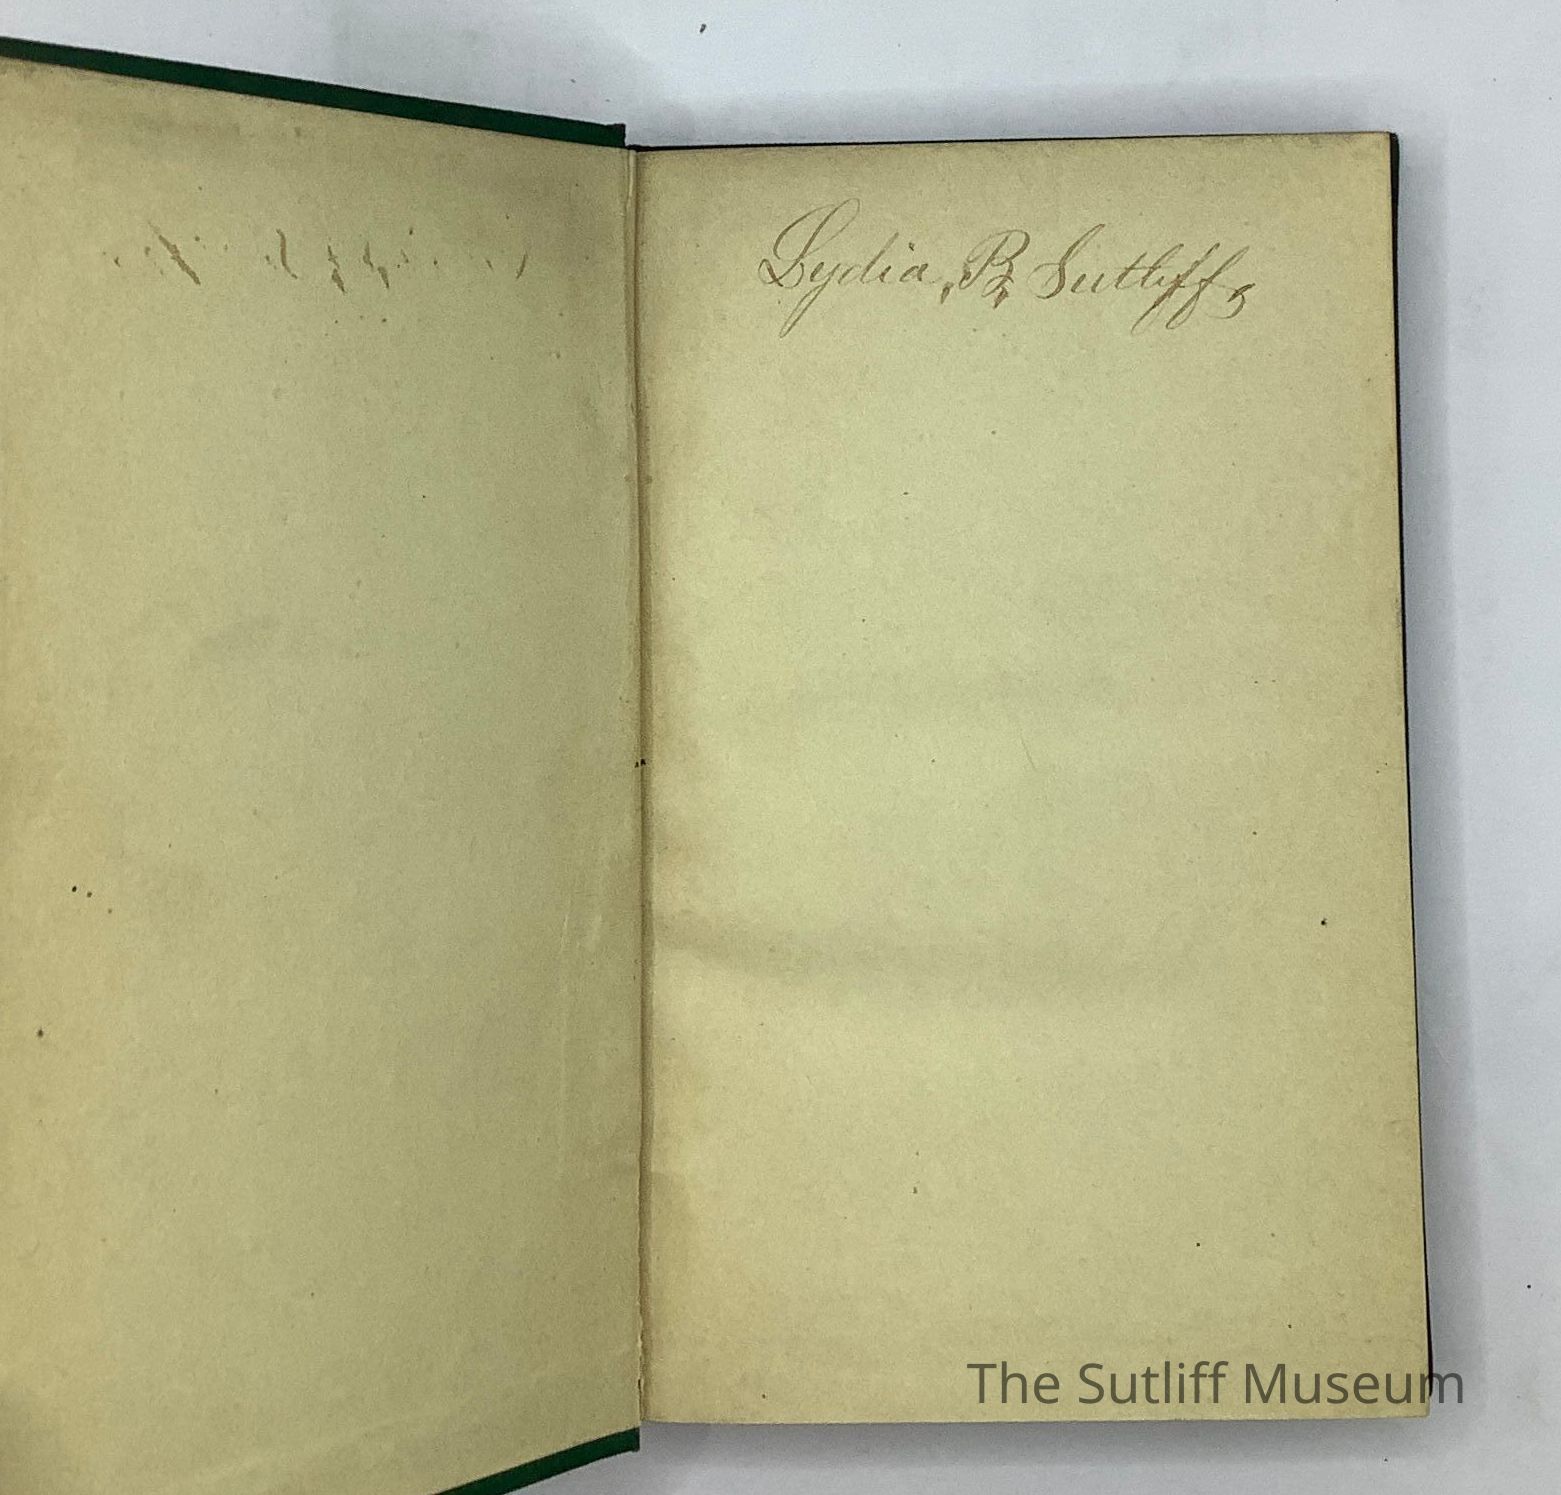 Lydia, B, Sutliff,
The Sutliff Museum